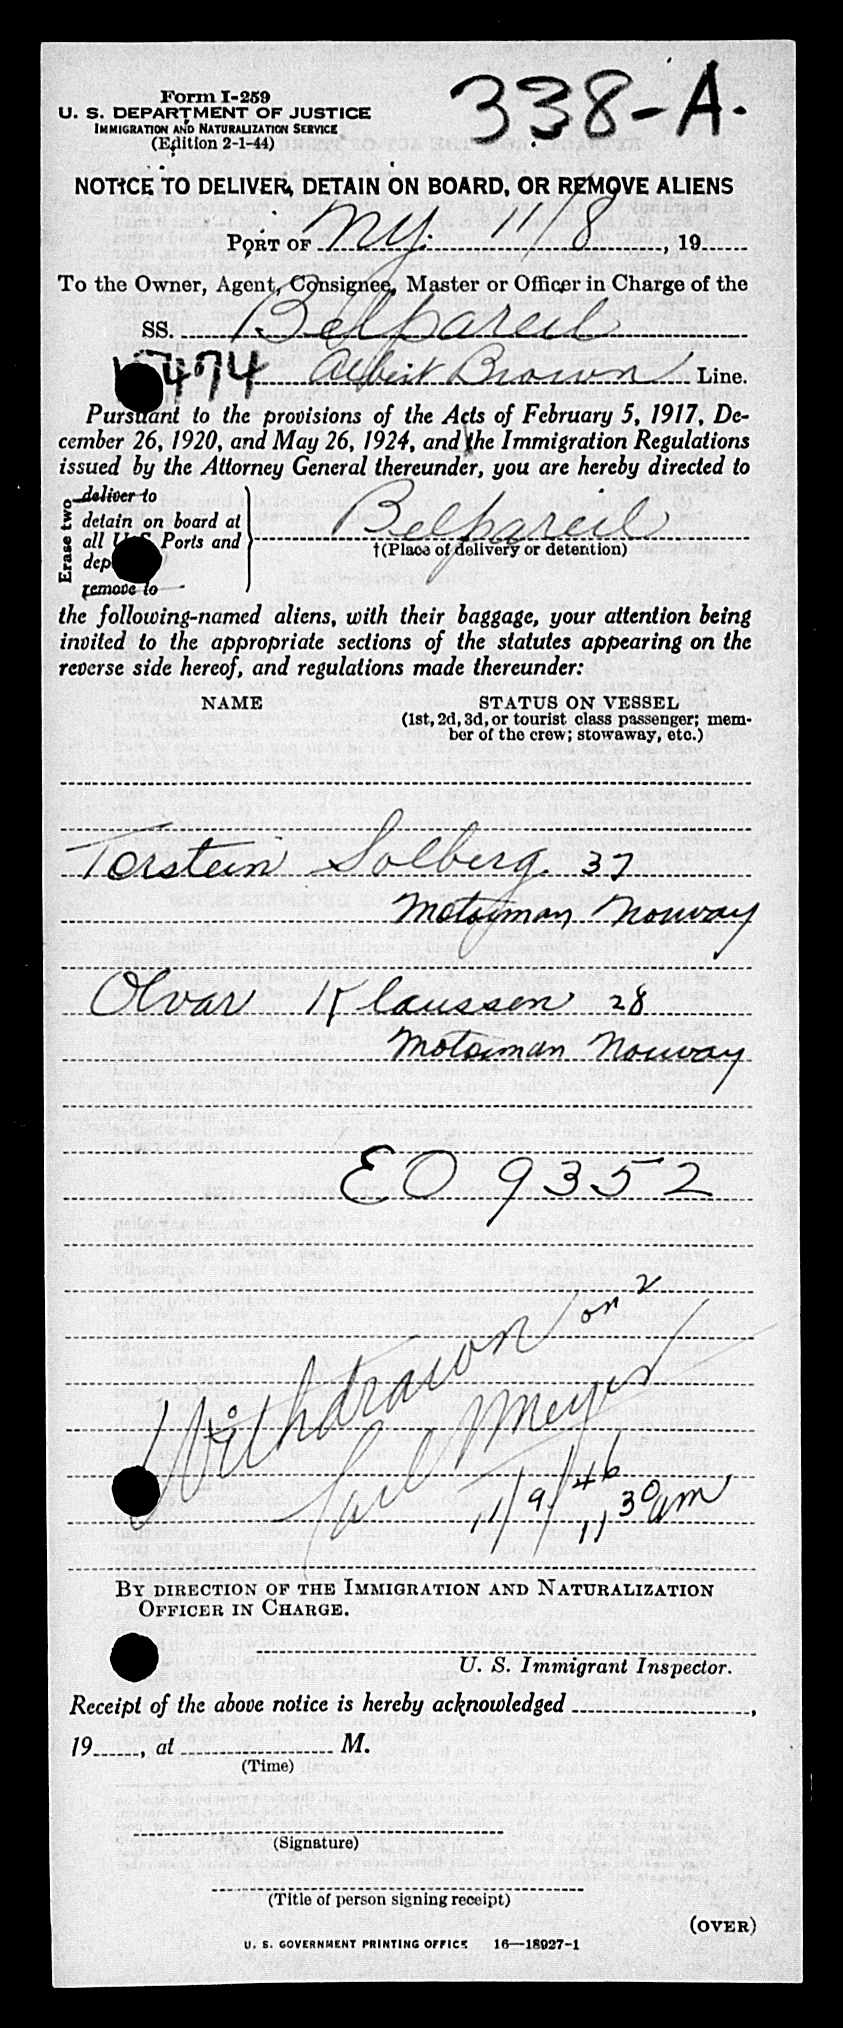 Form I-259
U. S. DEPARTMENT OF JUSTICE
IMMIGRATION AND NATURALIZATION SERVICE
(Edition 2-1-44)
338-A.
NOTICE TO DELIVER, DETAIN ON BOARD, OR REMOVE ALIENS
PORT OF NY. 11/8, 19
To the Owner, Agent, Consignee, Master or Officer in Charge of the
SS. Belpareil
474 Albert Brown Line.
Pursuant to the provisions of the Acts of February 5, 1917, De-
cember 26, 1920, and May 26, 1924, and the Immigration Regulations
issued by the Attorney General thereunder, you are hereby directed to
Erase two
deliver to
detain on board at
all U S Ports and
dep
remove to
Belpareil
†(Place of delivery or detention)
the following-named aliens, with their baggage, your attention being
invited to the appropriate sections of the statutes appearing on the
reverse side hereof, and regulations made thereunder:
NAME STATUS ON VESSEL
(1st, 2d, 3d, or tourist class passenger; mem-
ber of the crew; stowaway, etc.)
Torstein Solberg. 37
Motorman Norway
Olvar Klaussen 28
Motorman Norway
EO 9352
Withdrawn on 2
Carl Meyer
11/9/46
11 30 am
BY DIRECTION OF THE IMMIGRATION AND NATURALIZATION
OFFICER IN CHARGE.
U. S. Immigrant Inspector.
Receipt of the above notice is hereby acknowledged ,
19, at M.
(Time)
(Signature)
(Title of person signing receipt)
(OVER)
U. S. GOVERNMENT PRINTING OFFICE 16—18927-1